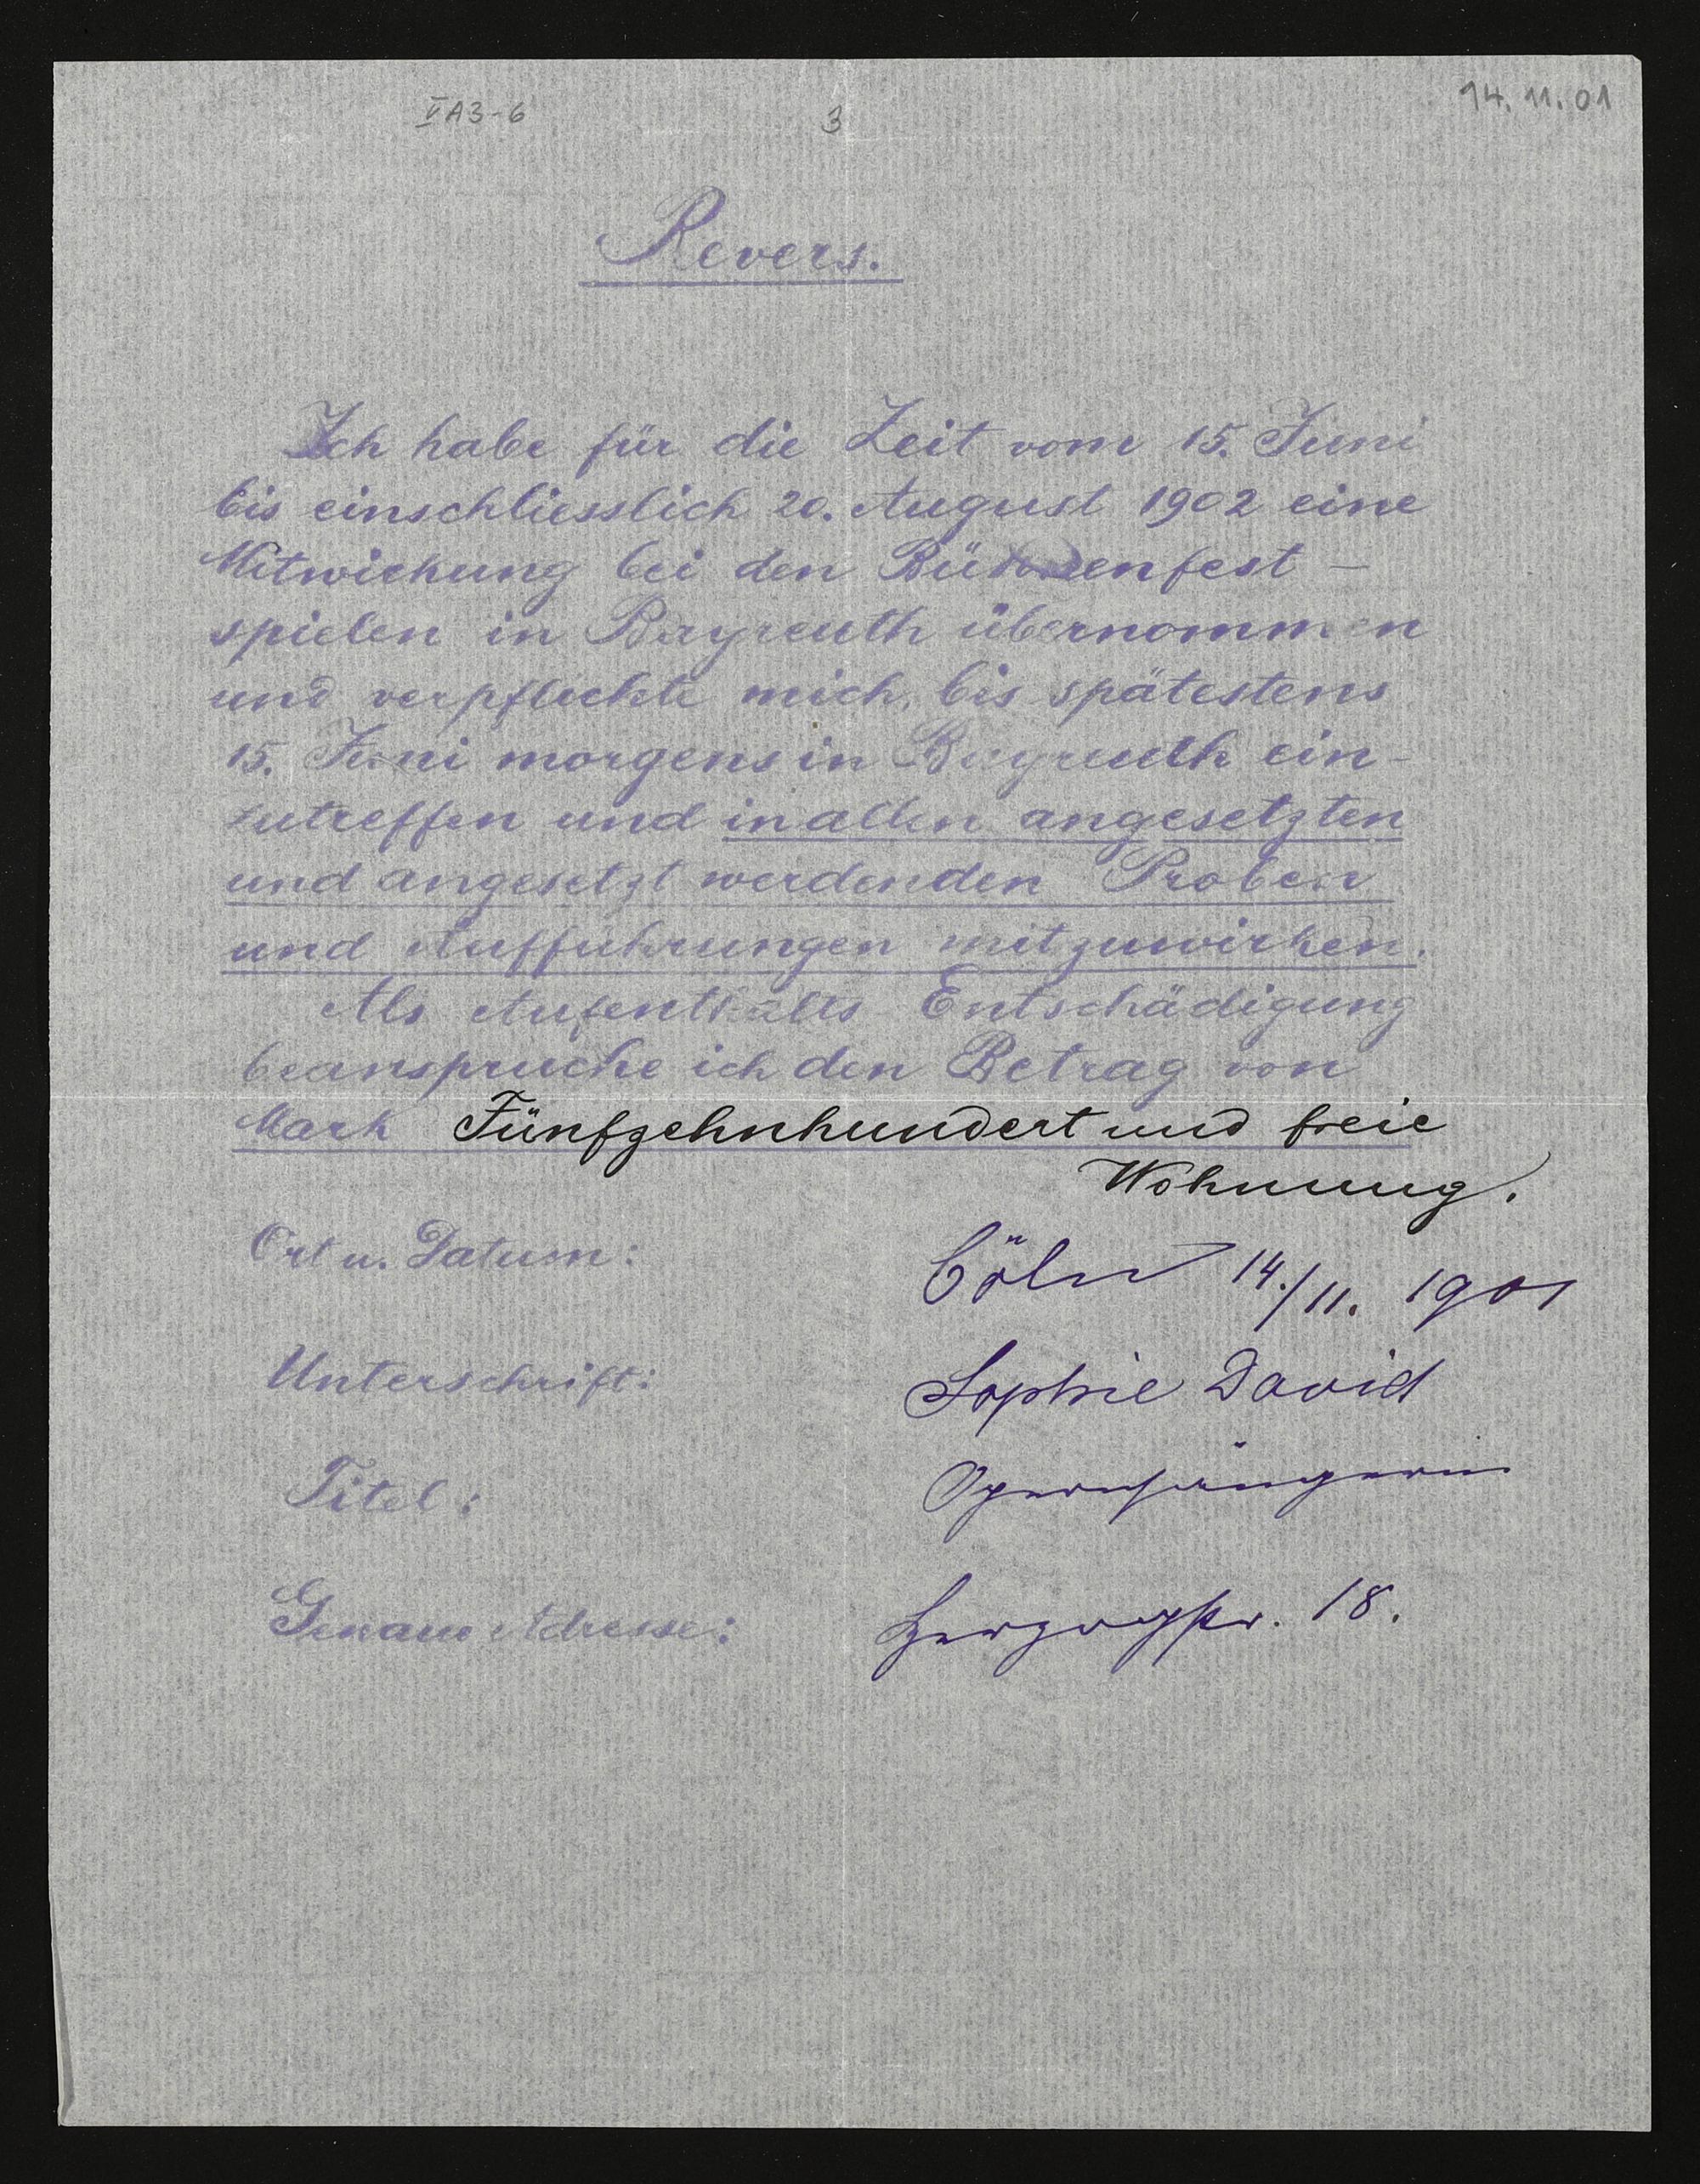 VA3-6 3 14.11.01
Revers.
Ich habe für die Zeit vom 15. Juni
bis einschliesslich 20. August 1902 eine
Mitwirkung bei den Bühnenfest-
spielen in Bayreuth übernommen
und verpflichte mich, bis spätestens
15. Juni morgens in Bayreuth ein-
zutreffen und in allen angesetzten
und angesetzt werdenden Proben
und Aufführungen mitzuwirken.
Als Aufenthalts-Entschädigung
beanspruche ich den Betrag von
Mark Fünfzehnhundert und freie
Wohnung.
Ort u. Datum: Cöln 14./11. 1901
Unterschrift: Sophie David
Titel: Opernsängerin
Genaue Adresse: Herzogstr. 18.